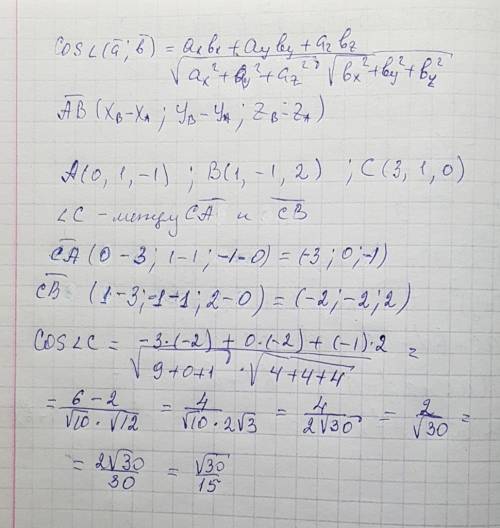 cos∠(a̅; b̅) = aₓbₓ + a_y b_y + a_z b_z / √(aₓ² + a_y² + a_z²) √(bₓ² + b_y² + b_z²)
A̅B̅ (x_B - x_A ; y_B - y_A ; z_B - z_A)
A(0, 1, -1) ; B(1, -1, 2) ; C(3, 1, 0)
∠C - между C̅A̅ и C̅B̅
C̅A̅ (0-3; 1-1; -1-0) = (-3; 0; -1)
C̅B̅ (1-3; -1-1; 2-0) = (-2; -2; 2)
cos∠C = -3·(-2) + 0·(-2) + (-1)·2 / √(9+0+1) · √(4+4+4) =
= 6-2 / √10 · √12 = 4 / √10 · 2√3 = 4 / 2√30 = 2 / √30 =
= 2√30 / 30 = √30 / 15